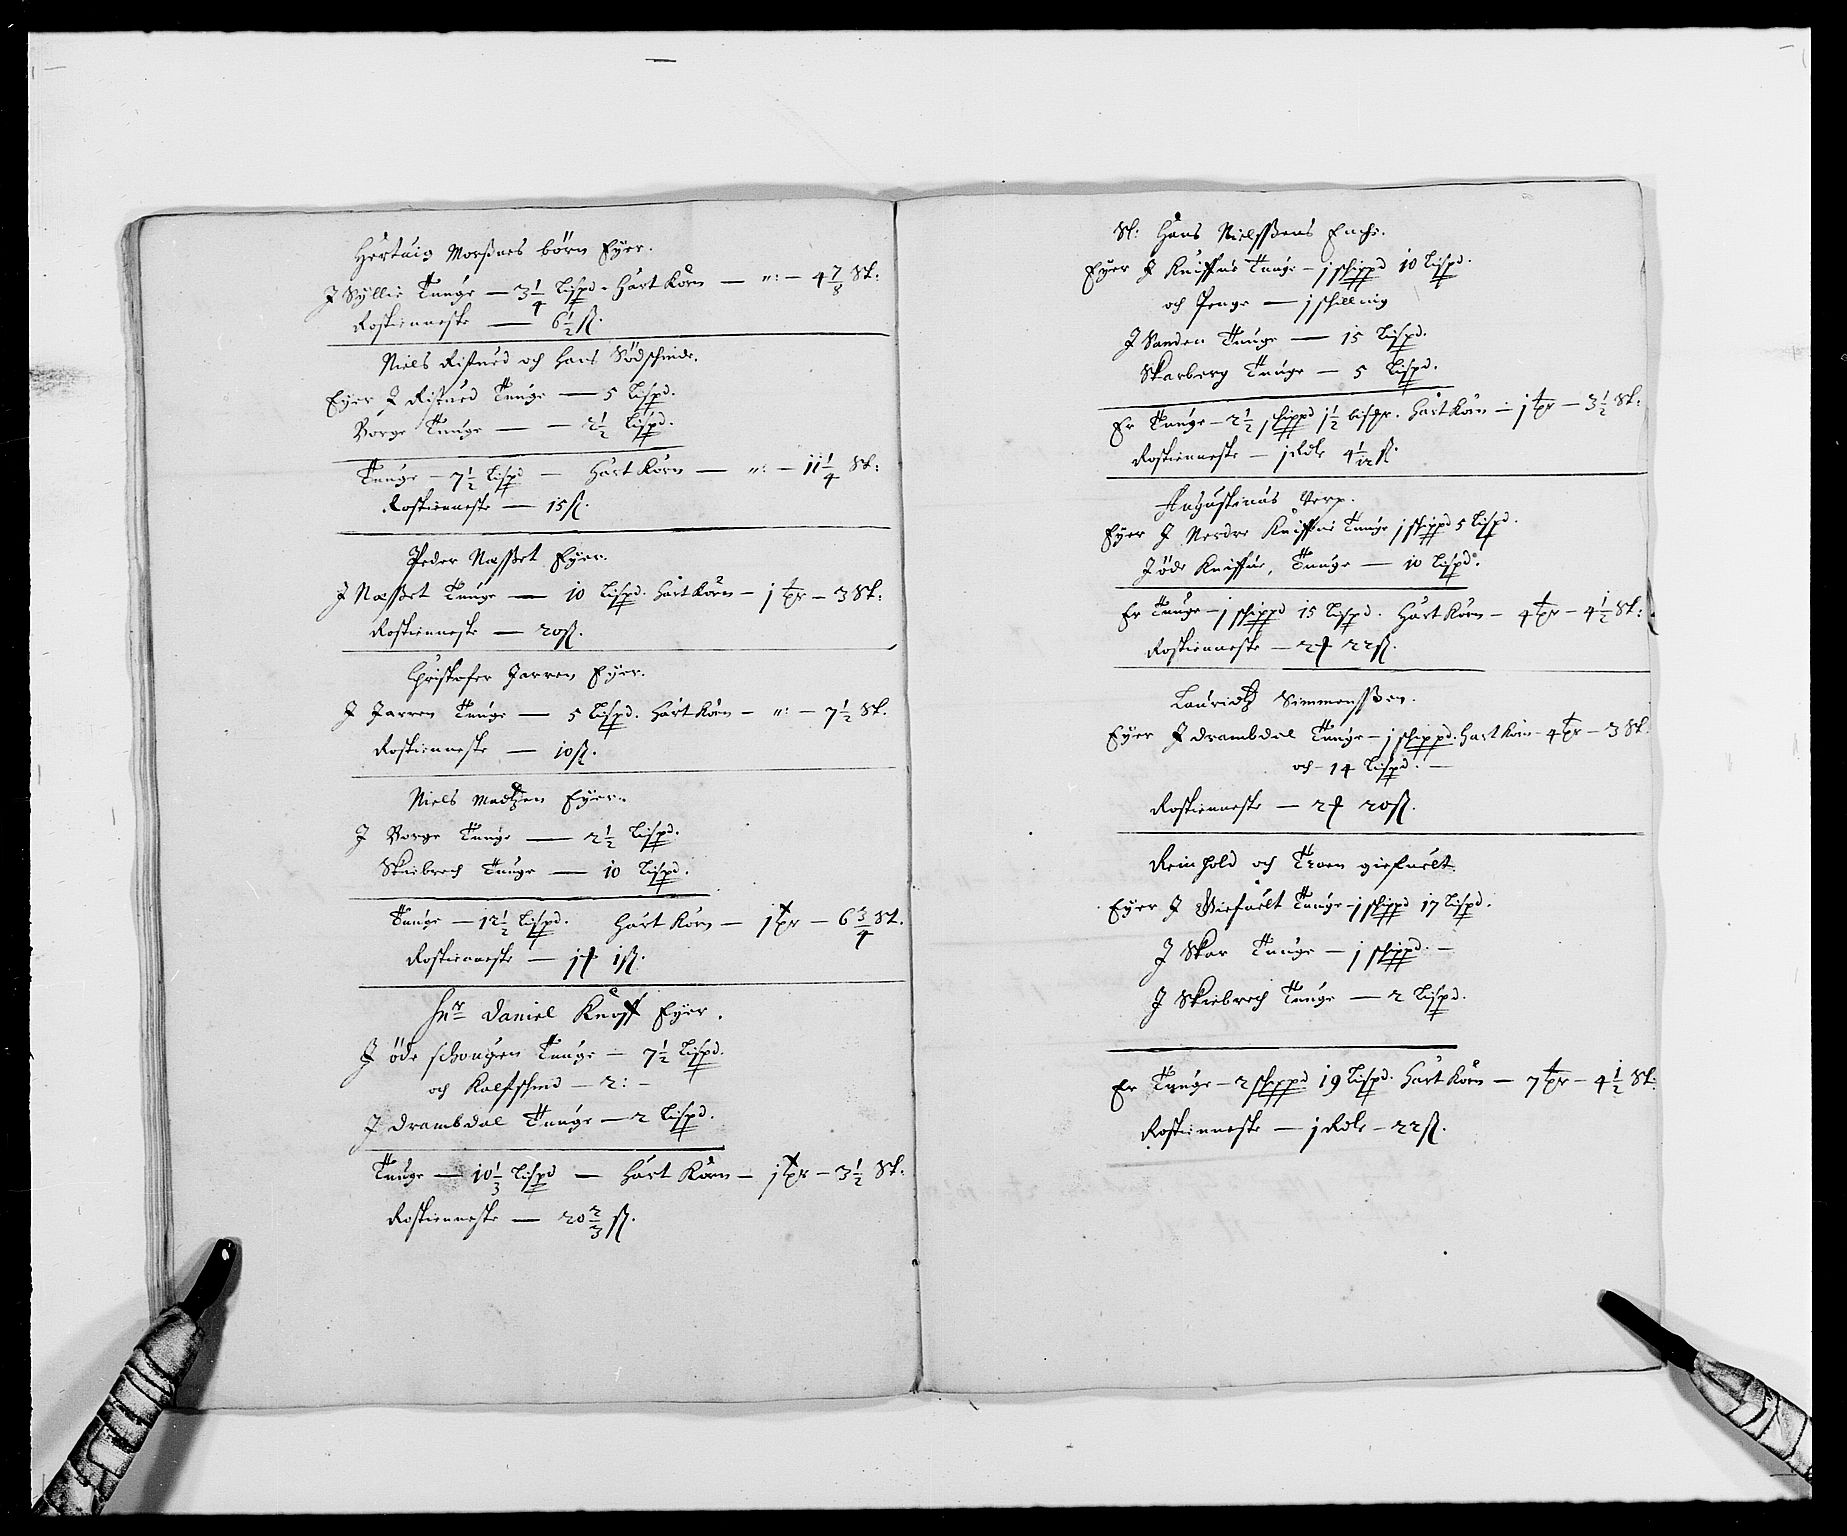 Hertuig Morßens börn Eÿer.
J Syllie Tunge — 3 1/4 Lispd. Hart Korn — ": — 4 7/8 Sk:
Rostienneste — 6 1/2 ß.
Niels Ristued och Hans Södschinds.
Eÿer J Ristued Tunge — 5 Lispd.
Borge Tunge — — 2 1/2 Lispd.
Tunge — 7 1/2 Lispd — Hart Korn — ": — 11 1/4 Sk:
Rostienneste — 15 ß.
Peder Næsset Eÿer.
J Næsset Tunge — 10 Lispd. Hart Korn — j tpr — 3 Sk:
Rostienneste — 20 ß.
Christofer Jarren Eÿer.
J Jarren Tunge — 5 Lispd. Hart Korn — ": — 7 1/2 Sk.
Rostienneste — 10 ß.
Niels Madtzen Eÿer.
J Borge Tunge — 2 1/2 Lispd.
Skiebrech Tunge — 10 Lispd.
Tunge — 12 1/2 Lispd. Hart Korn — j tpr — 6 3/4 Sk.
Rostienneste — j 1 ß.
Hr Daniel Knoff Eÿer.
J öde schougen Tunge — 7 1/2 Lispd.
och Kalfschind — 2: —
J Drambdal Tunge — 2 Lispd.
Tunge — 10 1/3 Lispd — Hart Korn — j tpr — 3 1/2 Sk.
Rostienneste — 20 2/3 ß.
Sl: Hans Nielssens Enche.
Eÿer J Kniffue Tunge — j schippd 10 Lispd.
och Penge — j schilling
J Sanden Tunge — 15 Lispd.
Skarberg Tunge — 5 Lispd.
Er Tunge — 2 1/2 schippd 1 1/2 bispr. Hart Korn — j tpr — 3 1/2 Sk:
Rostienneste — j Rdle 4 1/12 ß.
Augustinus Verp.
Eÿer J Nerdre Kniffue Tunge j schippd 5 Lispd.
J öde Kniffue, Tunge — 10 Lispd.
Er Tunge — j schippd 15 Lispd. Hart Korn — 4 tpr — 4 1/2 Sk:
Rostienneste — 2 22 ß.
Lauridtz Simmenssen.
Eÿer J Drambdal Tunge — j schippd. Hart Korn — 4 tpr — 3 Sk.
och — 14 Lispd. —
Rostienneste — 2 20 ß.
Reinhold och Troen giefuelt
Eÿer J Giefuelt Tunge — j schippd 17 Lispd.
J Skar Tunge — j schippd. —
J Skiebrech Tunge — 2 Lispd.
Er Tunge — 2 schippd 19 Lispd. Hart Korn — 7 tpr — 4 1/2 Sk.
Rostienneste — j Rdle — 22 ß.